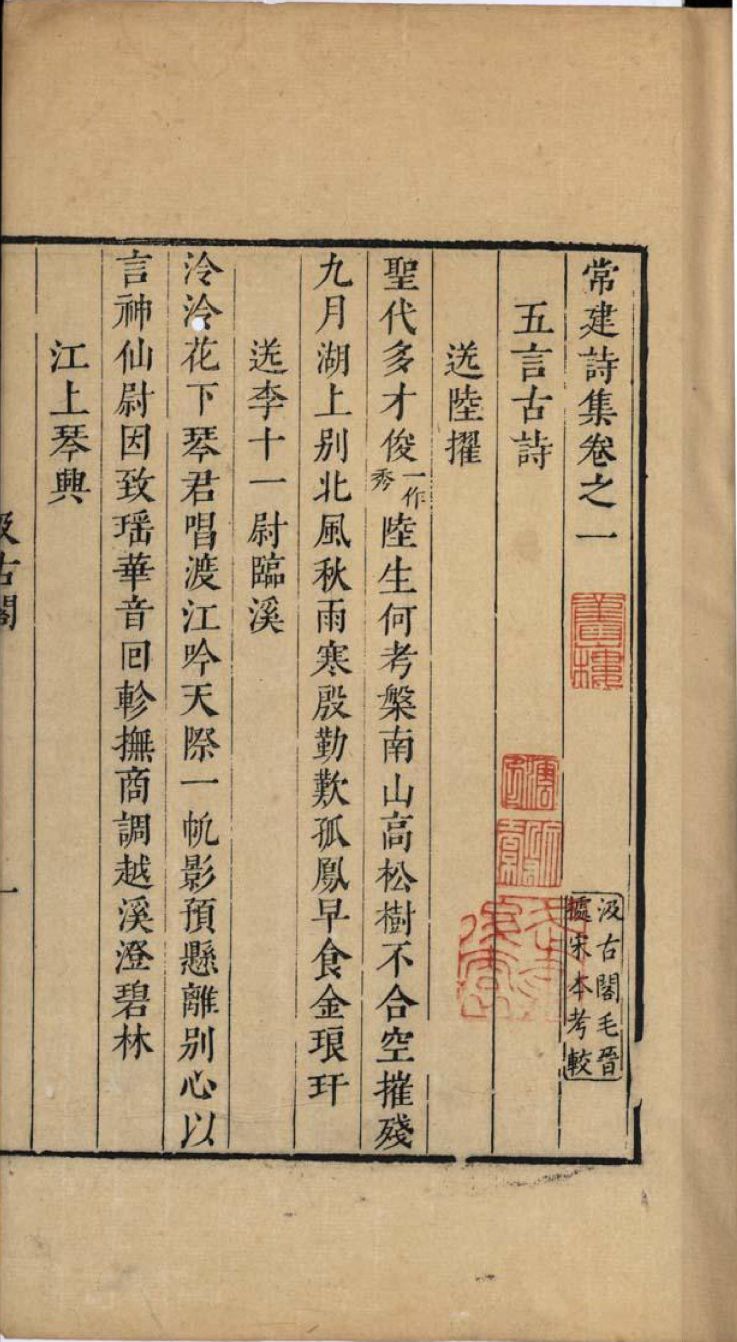 常建詩集卷之一
汲古閣毛晉
據宋本考較
五言古詩
送陸擢
聖代多才俊一作秀陸生何考槃南山高松樹不合空摧殘
九月湖上别北風秋雨寒殷勤歎孤鳳早食金琅玕
送李十一尉臨溪
泠泠花下琴君唱渡江吟天際一帆影預懸離别心以
言神仙尉因致瑶華音回軫撫商調越溪澄碧林
江上琴興
汲古閣
一